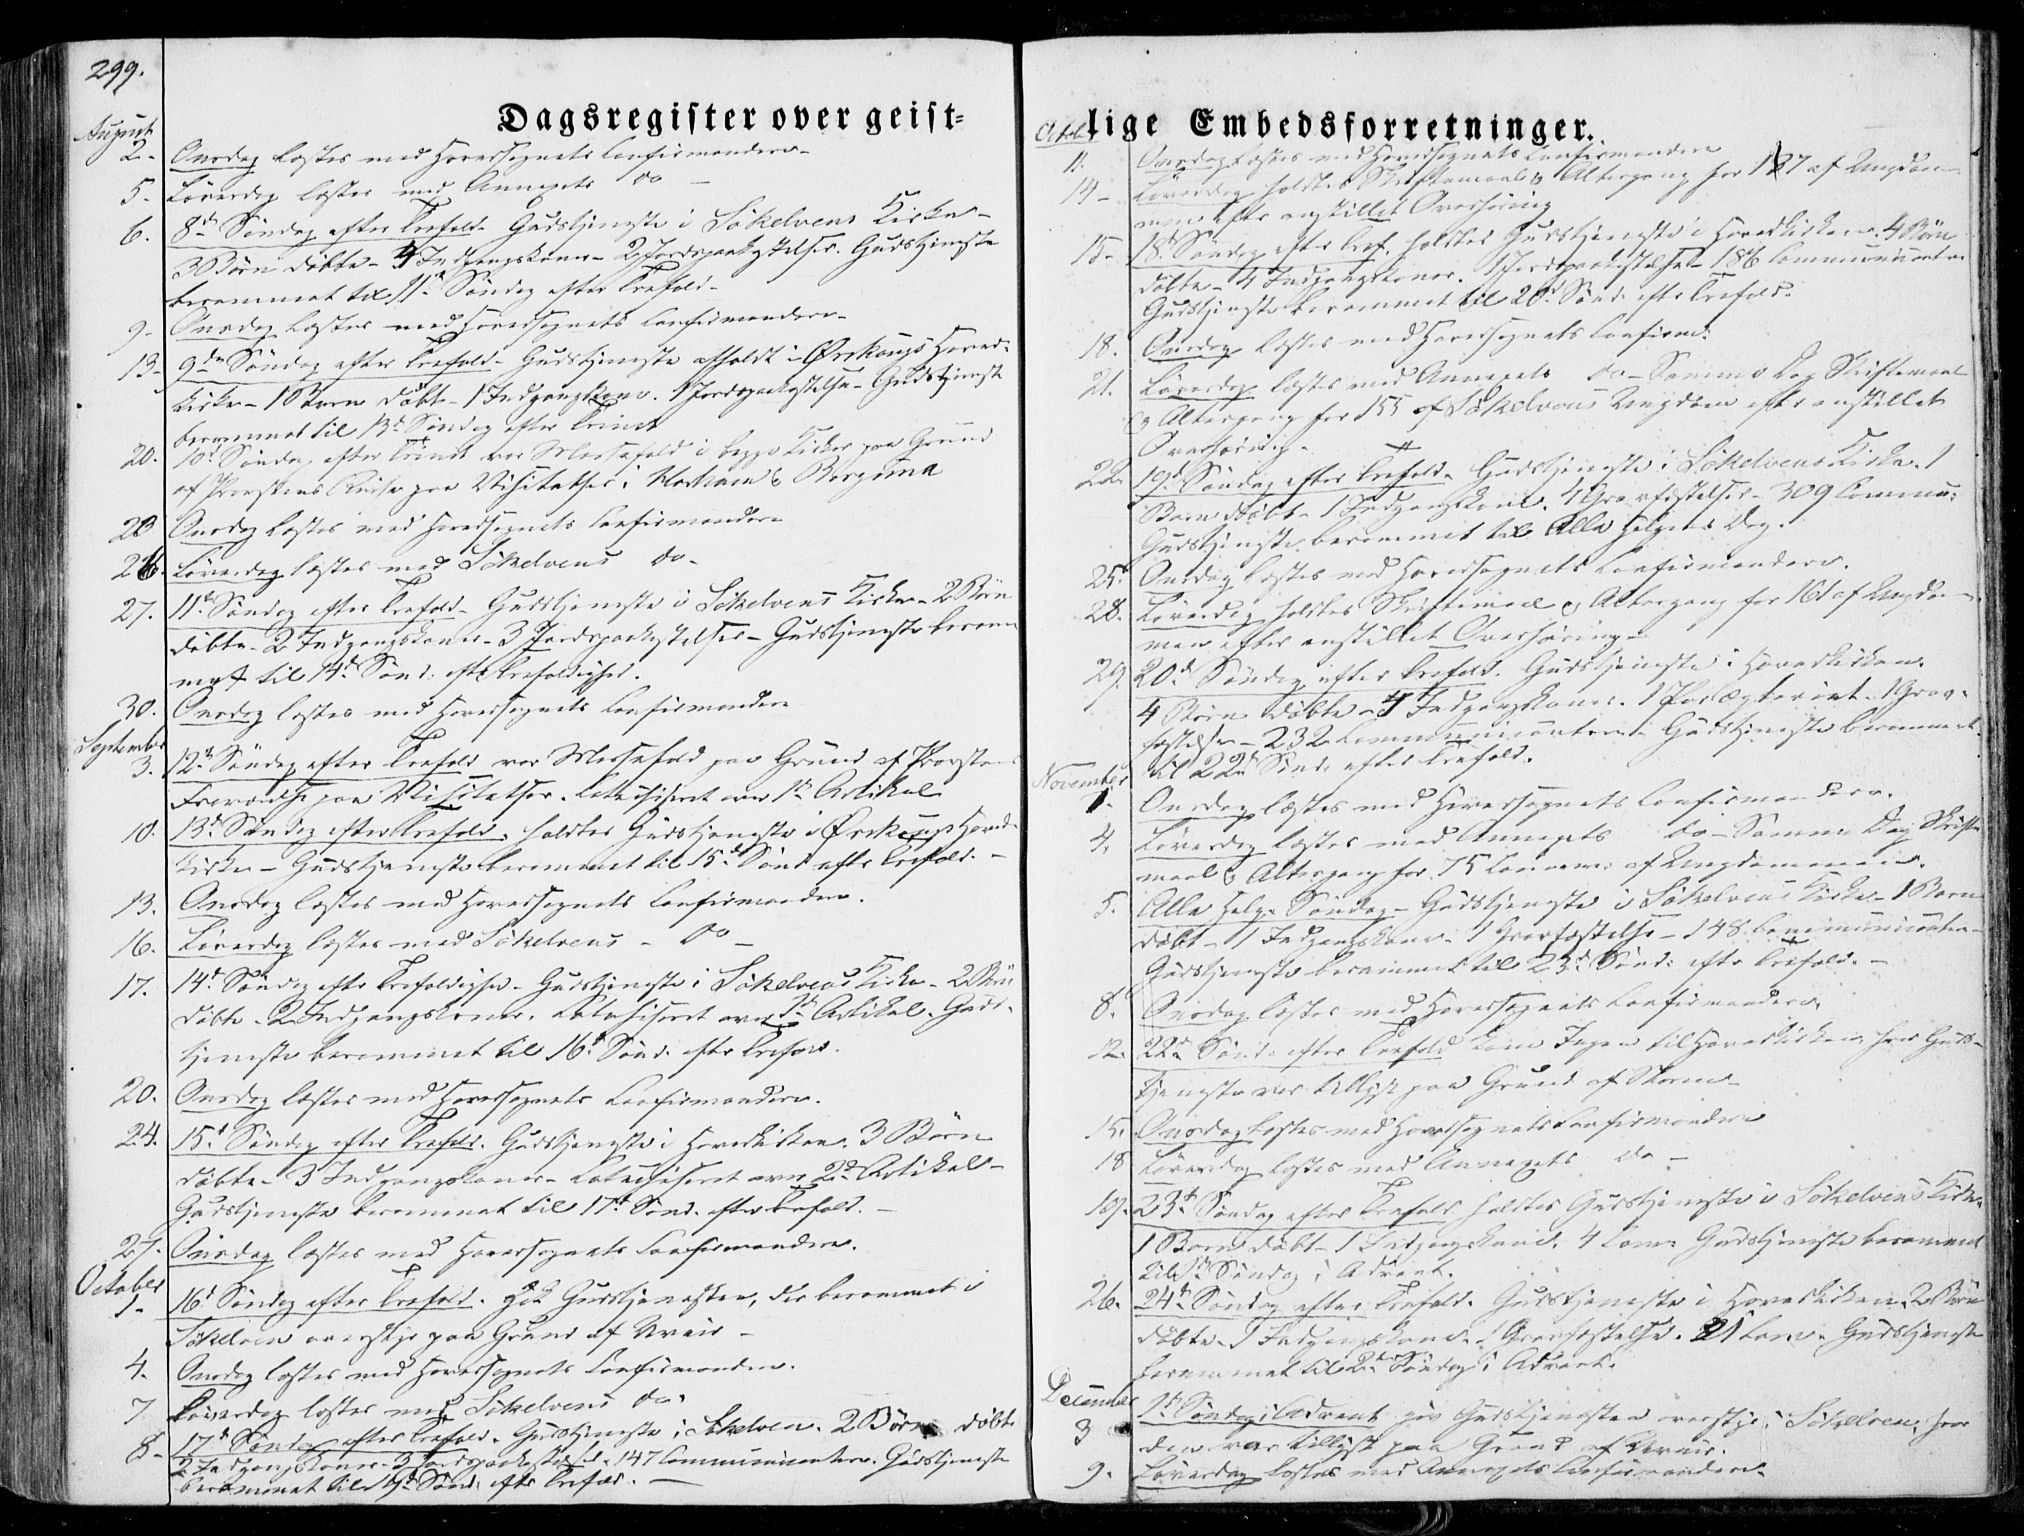 299.
Dagsregister over geist=
August
2. Onsdag læstes med Hovedsognets Confirmandere
5. Løverdag læstes med Annexets do
6. 8d Søndag efter Trefold. Gudstjeneste i Søkelvens Kirke
3 Børn døbte - 4 Indgangskoner - 2 Jordspaakastelser. Gudstjeneste
berammet til 11te Søndag efter Trefold.
9. Onsdag læstes med Hovedsognets Confirmandere
13. 9de Søndag efter Trefold. Gudstjeneste afholdt i Ørskougs Hoved-
kirke - 1 Barn døbt - 1 Indgangskone. 1 Jordspaakastelse - Gudstjeneste
berammet til 13d Søndag efter Trinit
20. 10d Søndag efter Trinit var Messefald i begge Kirker paa Grund
af Provstens Reise paa Visitatser i Harham & Borgund
23 Onsdag læstes med Hovedsognets Confirmandere
26. Løverdag læstes med Søkelvens do.
27. 11te Søndag efter Trefold. Gudstjeneste i Søkelvens Kirke - 2 Børn
døbte - 2 Indgangskoner - 3 Jordspaakastelser - Gudstjeneste beram-
met til 14d Sønd: efter Trefoldighed.
30. Onsdag læstes med Hovedsognets Confirmandere
September
3. 12te Søndag efter Trefold var Messefald paa Grund af Provstens
Fraværelse paa Visitatser. Catechiseret over 1ste Artikel
10. 13d Søndag efter Trefold. holdtes Gudstjeneste i Ørskougs Hoved-
kirke - Gudstjeneste berammet til 15d Sønd efter Trefold. -
13. Onsdag læstes med Hovedsognets Confirmandere.
16. Løverdag læstes med Søkelvens - do -
17. 14d Søndag efter Trefoldighed - Gudstjeneste i Søkelvens Kirke - 2 Børn
døbte - 2 Indgangskoner. Catechiseret over 1ste Artikel. Guds-
tjeneste berammet til 16d Sønd: efter Trefold.
20. Onsdag læstes med Hovedsognets Confirmandere.
24. 15d Søndag efter Trefold. Gudstjeneste i Hovedkirken. 3 Børn
døbte - 3 Indgangskoner - Catechiseret over 2d Artikel -
Gudstjeneste berammet til 17d Sønd. efter Trefold. -
27. Onsdag læstes med Hovedsognets Confirmandere.
October
1. 16d Søndag efter Trefold. Gik Gudstjenesten, der berammet i
Søkelven overstyr paa Grund af Uveir -
4. Onsdag læstes med Hovedsognets Confirmandere.
7 Løverdag læstes med Søkelvens do.
8. 17d Søndag efter Trefold. Gudstjeneste i Søkelven. 2 Børn døbte
2 Indgangskoner - 3 Jordspaakastelser. 147 Communicantere. Gudstjeneste
berammet til 19d Sønd: efter Trefold. -
lige Embedsforretninger.
Octb
11. Onsdag læstes med Hovedsognets Confirmandere
14 - Løverdag holdtes Skriftemaal & Altergang for 127 af Ungdom-
men efter anstillet Overhøring
15 - 18d Søndag efter Tref. holdtes Gudstjeneste i Hovedkirken. 4 Børn
døbte - 4 Indgangskoner. 1 Jordspaakastelse - 186 Communicantere
Gudstjeneste berammet til 20d Sønd: efter Trefold.
18. Onsdag læstes med Hovedsognets Confirm:
21. Løverdag læstes med Annexets do - Samme Dag Skriftemaal
& Altergang for 155 af Søkelvens Ungdom efter anstillet
Overhøring.
22. 19d Søndag efter Trefold. Gudstjeneste i Søkelvens Kirke. 1
Barn døbt - 1 Indgangskone. 4 Gravfæstelser - 309 Commu:
Gudstjeneste berammet til Alle Helgens Dag.
25. Onsdag læstes med Hovedsognets Confirmandere.
28. Løverdag holdtes Skriftemaal & Altergang for 161 af Ungdom-
men efter anstillet Overhøring -
29. 20d Søndag efter Trefold. Gudstjeneste i Hovedkirken.
4 Børn døbte - 4 Indgangskoner. 1 Par Ægteviet - 1 Grav-
fæstelse - 232 Communicantere - Gudstjeneste berammet
til 22d Sønd: efter Trefold.
November
1. Onsdag læstes med Hovedsognets Confirmandere.
4. Løverdag læstes med Annexets do - Samme Dag Skrifte
maal & Altergang for 75 Comm: af Ungdommen.
5. Alle Helg. Søndag - Gudstjeneste i Søkelvens Kirke - 1 Barn
døbt - 1 Indgangskone - 1 Gravfæstelse - 148 Communicantere -
Gudstjeneste berammet til 23d Sønd: efter Trefold. -
8. Onsdag læstes med Hovedsognets Confirmandere.
12. 22d Sønd: efter Trefold kom Ingen til Hovedkirken hvor Guds-
tjeneste var tillyst paa Grund af Storm
15. Onsdag læstes med Hovedsognets Confirmandere
18 Løverdag læstes med Annexets do -
19. 23d Søndag efter Trefold holdtes Gudstjeneste i Søkelvens Kirke.
1 Barn døbt - 1 Indgangskone. 4 Com: Gudstjeneste berammet
til 1ste Søndag i Advent.
26. 24d Søndag efter Trefold. Gudstjeneste i Hovedkirken. 2 Børn
døbte. 1 Indgangskone. 1 Gravfæstelse. 21 Com. Gudstjeneste
berammet til 2den Søndag i Advent.
December
3 1ste Søndag i Advent gik Gudstjenesten overstyr i Søkelven, hvor
den var tillyst paa Grund af Uveir.
9. Løverdag læstes med Annexets Confirmandere.